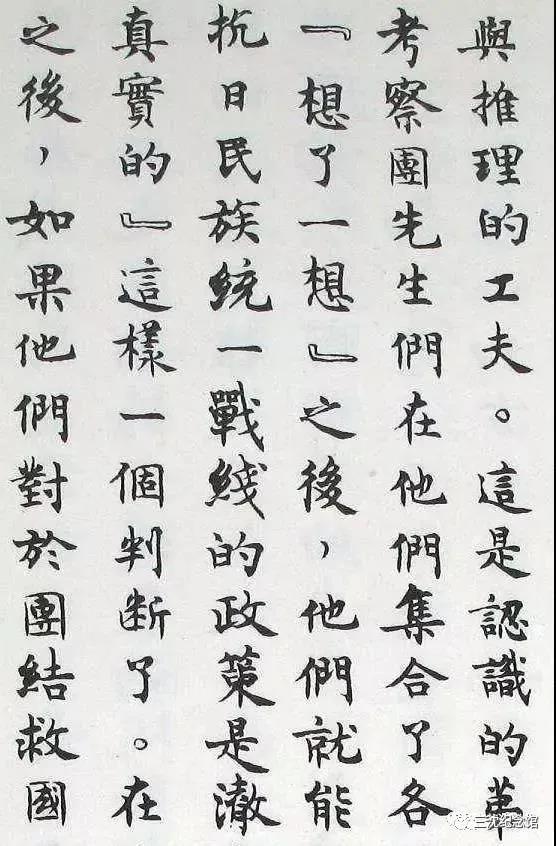 與推理的工夫。這是認識的革
考察團先生們在他們集合了各
『想了一想』之後，他們就能
抗日民族統一戰綫的政策是澈
真實的』這樣一個判斷了。在
之後，如果他們對於團結救國
三沈纪念馆